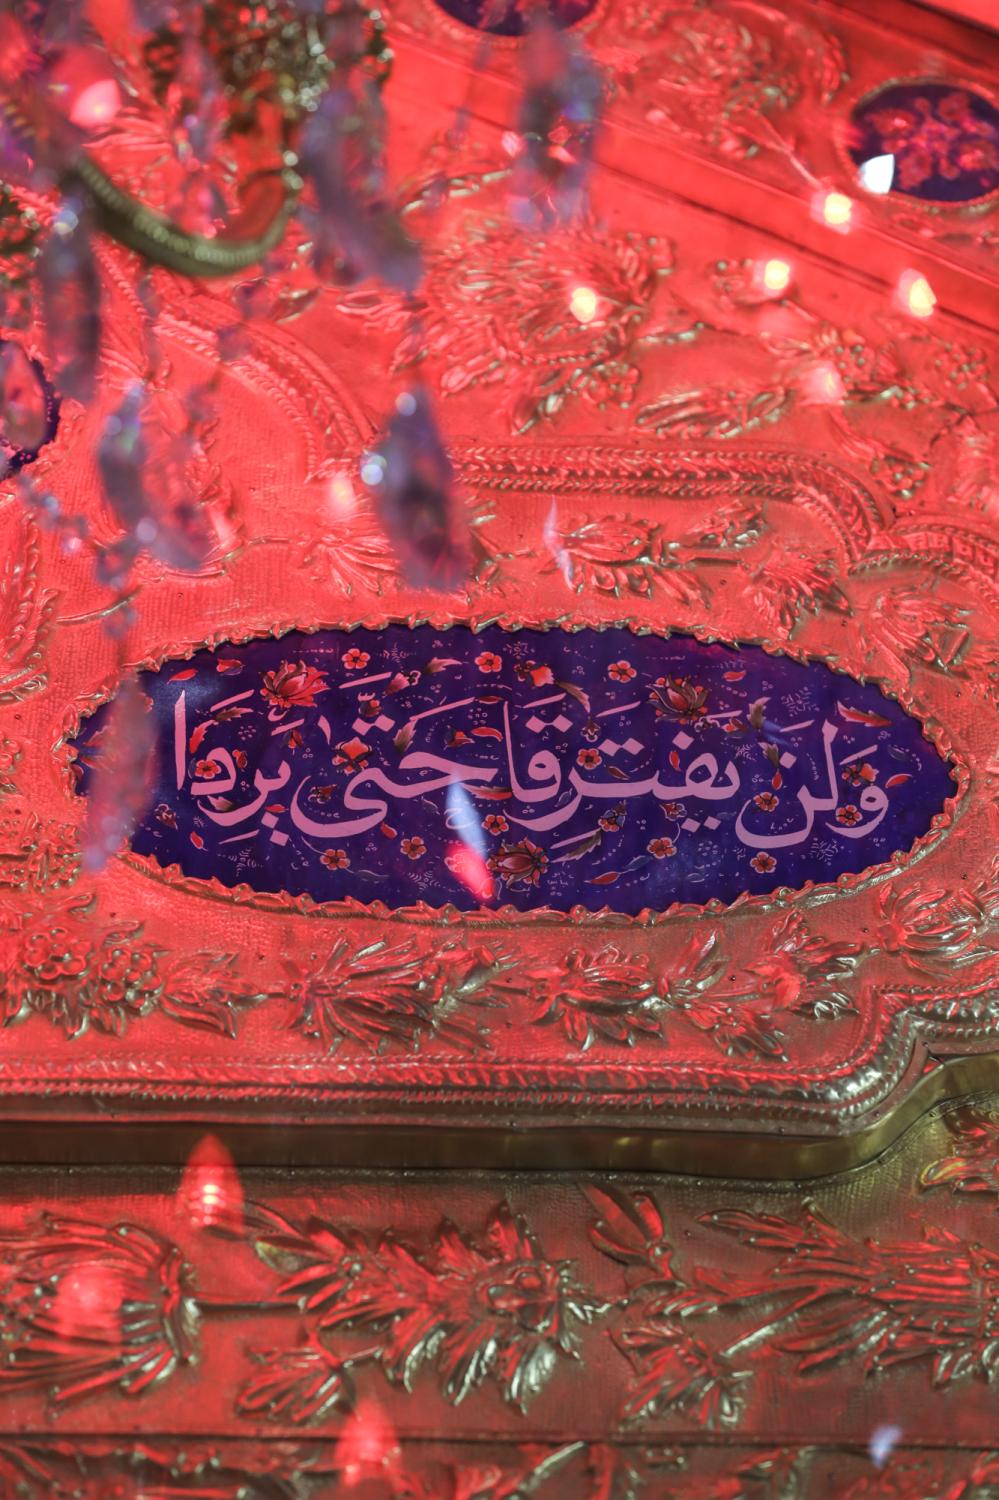 وَلَن يَفتَرِقَا حَتَّى يَرِدَا